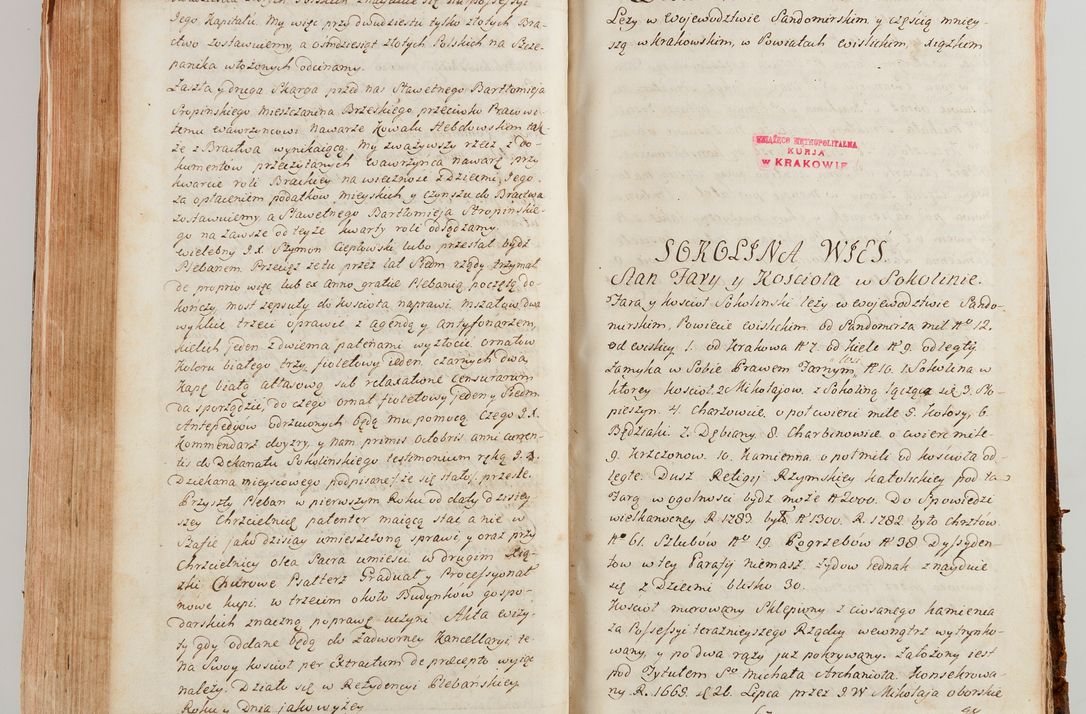 Jego Kapitału. My więc przy dwudziestu tylko złotych Bra-
ctwo zostawuiemy, a ośmdziesiąt złotych Polskich na Szcze-
panika włożonych odcinamy.
Zaszła y druga Skarga przed nas Sławetnego Bartłomieja
Stropińskiego mieszczanina Brzeskiego przeciwko Pracowi-
temu Wawrzyńcowi Nawarze Kowalu Hebdowskim tak-
że z Bractwa wynikaiącą. My zważywszy rzecz z do-
kumentów przeczytanych Wawrzyńca Nawarę przy
kwarcie roli Brackiey na wieczność z Dziećmi Jego
za opłaceniem podatków mieyskich y czynszu do Bractwa
zostawuiemy, a Sławetnego Bartłomieja Stropińskie-
go na zawsze od teyże kwarty roli odsądzamy.
Wielebny J.X. Szymon Ciepłowski lubo przestał bydź
Plebanem. Przecięż że tu przez lat Siedm rządy trzymał
de proprio więc lub ex anno gratiæ Plebanią poczętą do-
kończy, most zepsuty do kościoła naprawi, mszałów dwa
wyklię trzeci oprawić z agendą y antyfonarzem,
kielich jeden z dwiema patenami wyzłocić ornatów
koloru białego trzy, fioletowy ieden, czarnych dwa,
Kapę białą atłasową sub relaxatione Censurarum
da sporządzić, do czego ornat fioletowy jeden y Siedm
Antepedyów odrzuconych będą mu pomocą. Czego J.X.
Kommendarz doyzry, y nam primis Octobris anni curren-
tis do Dekanatu Sokolińskiego testimonium ręką J.X.
Dziekana mieyscowego podpisane, że się stało, prześle.
Przyszły Pleban w pierwszym Roku od daty dzisiey-
szey Chrzcielnicę patenter maiącą stać a nie w
Szafie jako dzisiay umieszczoną sprawi, y oraz przy
Chrzcielnicy olea Sacra umieści w drugim Xią-
żki Chórowe Psałterz Graduał y Processyonał
nowe kupi, w trzecim około Budynków gospo-
darskich znaczną poprawę uczyni. Akta wizy-
ty gdy oddane będą do Zadworney Kancellaryi te-
na Swoy kościoł per Extractum de præcepto wyiąć
należy. Działo się w Rezydencyi Plebańskiey
Roku y Dnia jako wyżey
Leży w Woiewództwie Sandomirskim y częścią mniey-
szą w krakowskim, w Powiatach wislickim, xiążkim
KSIĄŻĘCO METROPOLITALNA
KURJA
W KRAKOWIE
SOKOLINA WIEŚ.
Stan Fary y Kościoła w Sokolinie.
Fara y kościoł Sokoliński leży w Woiewództwie Sando-
mirskim, Powiecie wislickim. Od Sandomirza mil No 12.
od wislicy. 1. od Krakowa N 7. od Kielc N 9. odległy.
Zamyka w Sobie Prawem Farnym wsi No 10. 1. Sokolina w
ktorey kościoł. 2. Mikołajow. z Sokoliną łącząca się 3. Sto-
pieszyn. 4. Charzowice. o poł cwierci mile 5. Kołosy, 6.
Będziaki. 7. Dębiany 8. Charbinowice o cwierć mile
9. Krzczonow. 10. Kamienna o poł mili od kościoła od-
ległe. Dusz Religij Rzymskiey Katolickiey pod tą
Farą w ogolności bydź może N 2000. Do Spowiedzi
wielkanocney R. 1783. było N 1300. R. 1782. było Chrztów
No 61. Szlubów No 19. Pogrzebów N 38. Dyssyden-
tow w tey Parafij niemasz. żydow iednak znayduie
się z Dziećmi blisko 30.
Kościoł murowany Sklepiony z ciosanego kamienia
za Possessyi teraznieyszego Rządcy wewnątrz wytynko-
wany, y po dwa razy już pokrywany. Założony iest
pod Tytułem So Michała Archanioła. Konsekrowa-
ny R. 1668. d 21. Lipca przez J.W Mikołaja Oborskie